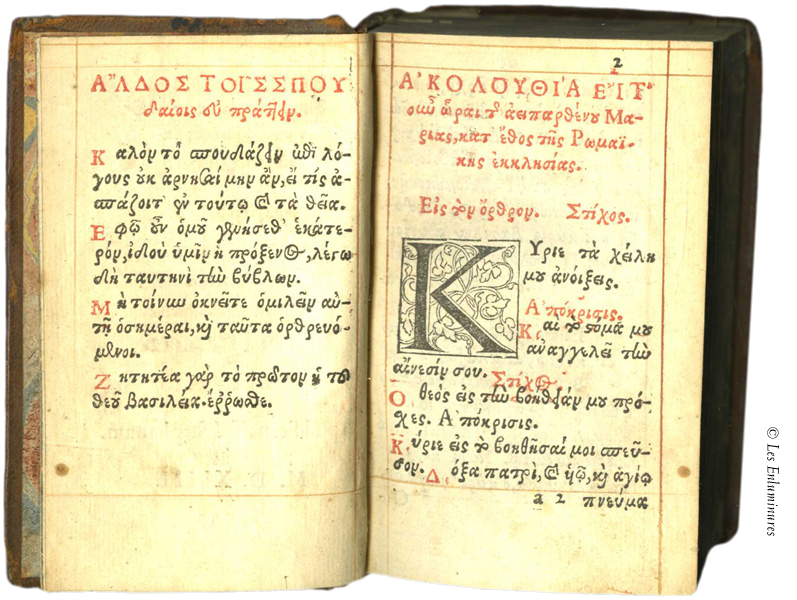 ΑʼΛΔΟΣ ΤΟΙΣ ΣΠΟΥ
δαίοις εὖ πράττειν.
Καλὸν τὸ σπουδάζειν ἐπὶ λό-
γους οὐκ ἀρνησαίμην ἂν, εἴ τις ἀ-
σπάζοιτ' ἐν τούτῳ καὶ τὰ θεῖα.
Ἐφʼ ᾧ οὖν ὁμοῦ γενήσεθ' ἑκάτε-
ρον, ἰδοὺ ὑμῖν ἡ πρόξενος, λέγω
δὴ ταυτηνὶ τὴν βύβλον.
Μὴ τοίνυν ὀκνεῖτε ὁμιλεῖν αὐ-
τῇ ὁσημέραι, καὶ ταῦτα ὀρθρευό-
μενοι.
Ζητητέα γὰρ τὸ πρῶτον ἡ τοῦ
θεοῦ βασιλεία. ἔρρωσθε.
2
ΑʼΚΟΛΟΥΘΙʼΑ ΕΙʼΣ Τ
οῦν ὧραι τῆς ἀειπαρθένου Μα-
ρίας, κατ' ἔθος τῆς Ρωμαϊ-
κῆς ἐκκλησίας.
Εἰς τὸν ὄρθρον. Στίχος.
Κύριε τὰ χείλη
μου ἀνοίξεις.
Ἀπόκρισις.
Καὶ τὸ στόμα μου
ἀναγγελεῖ τὴν
αἴνεσίν σου. Στίχος
Ὁ θεὸς εἰς τὴν βοήθειάν μου πρό-
χες. Ἀπόκρισις.
Κύριε εἰς τὸ βοηθῆσαί μοι σπεῦ-
σον. Δόξα πατρὶ, καὶ υἱῷ, καὶ ἁγίῳ
a 2 πνεύμα
© Les Enluminures